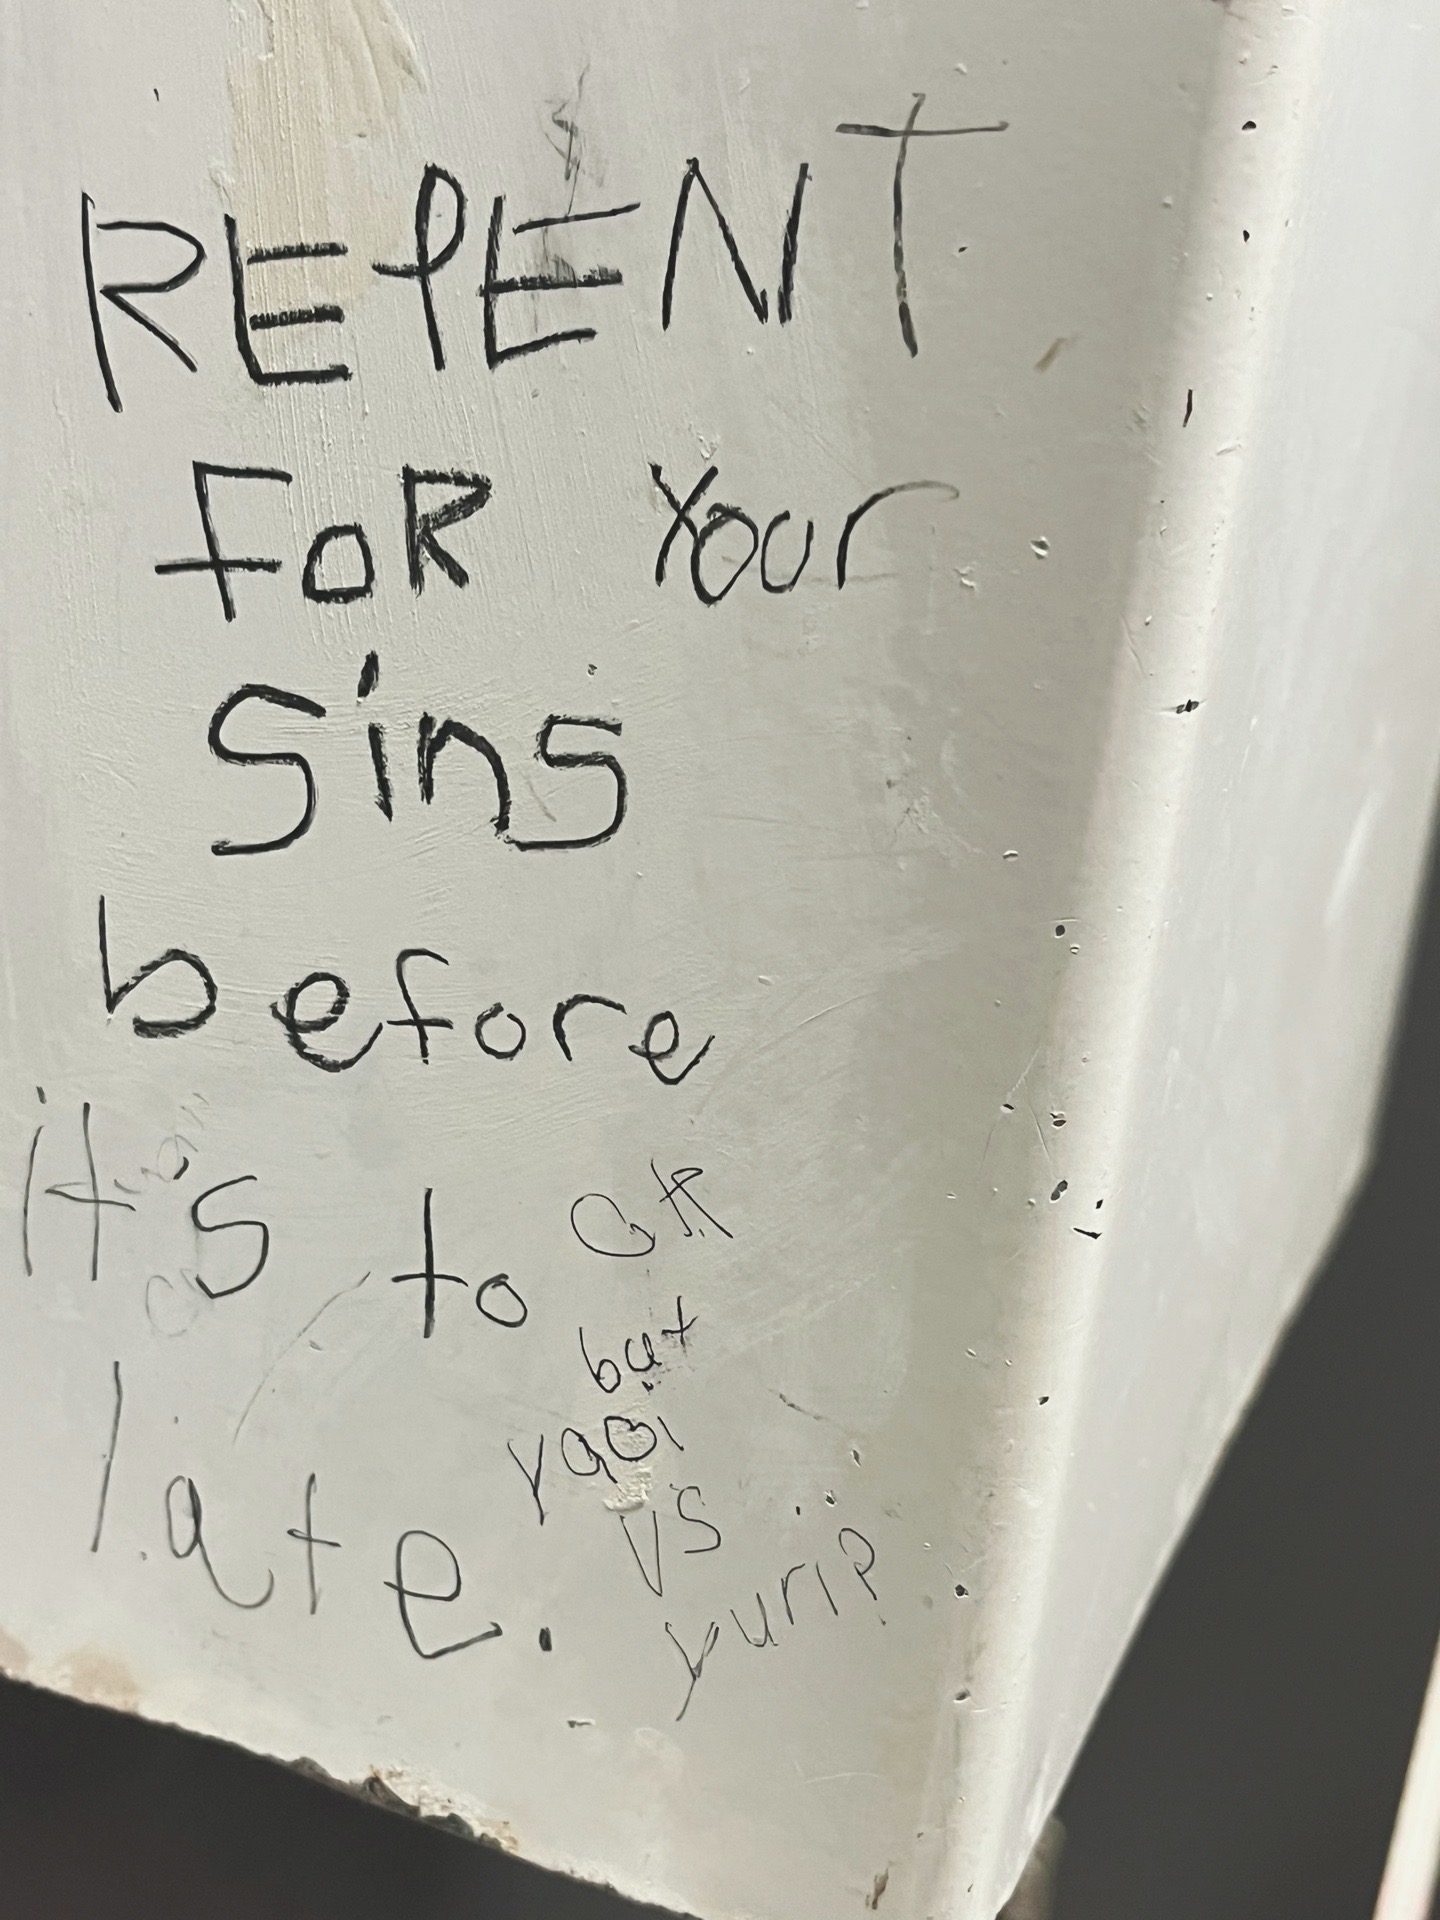 REPENT
FOR Your
Sins
before
it's to
late.
OK
but
yaoi
vs
yuri?